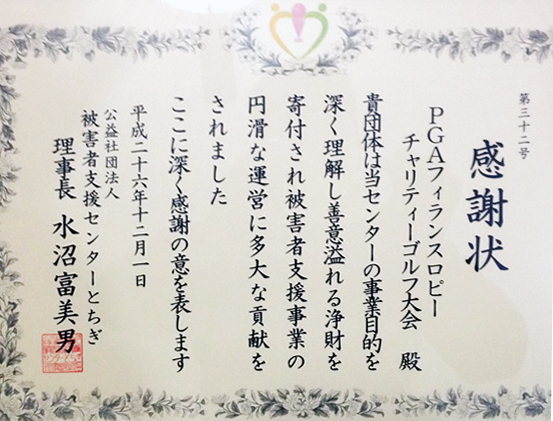 第三十二号
感謝状
PGAフィランスロピー
チャリティーゴルフ大会 殿
貴団体は当センターの事業目的を
深く理解し善意溢れる浄財を
寄付され被害者支援事業の
円滑な運営に多大な貢献を
されました
ここに深く感謝の意を表します
平成二十六年十二月一日
公益社団法人
被害者支援センターとちぎ
理事長 水沼富美男